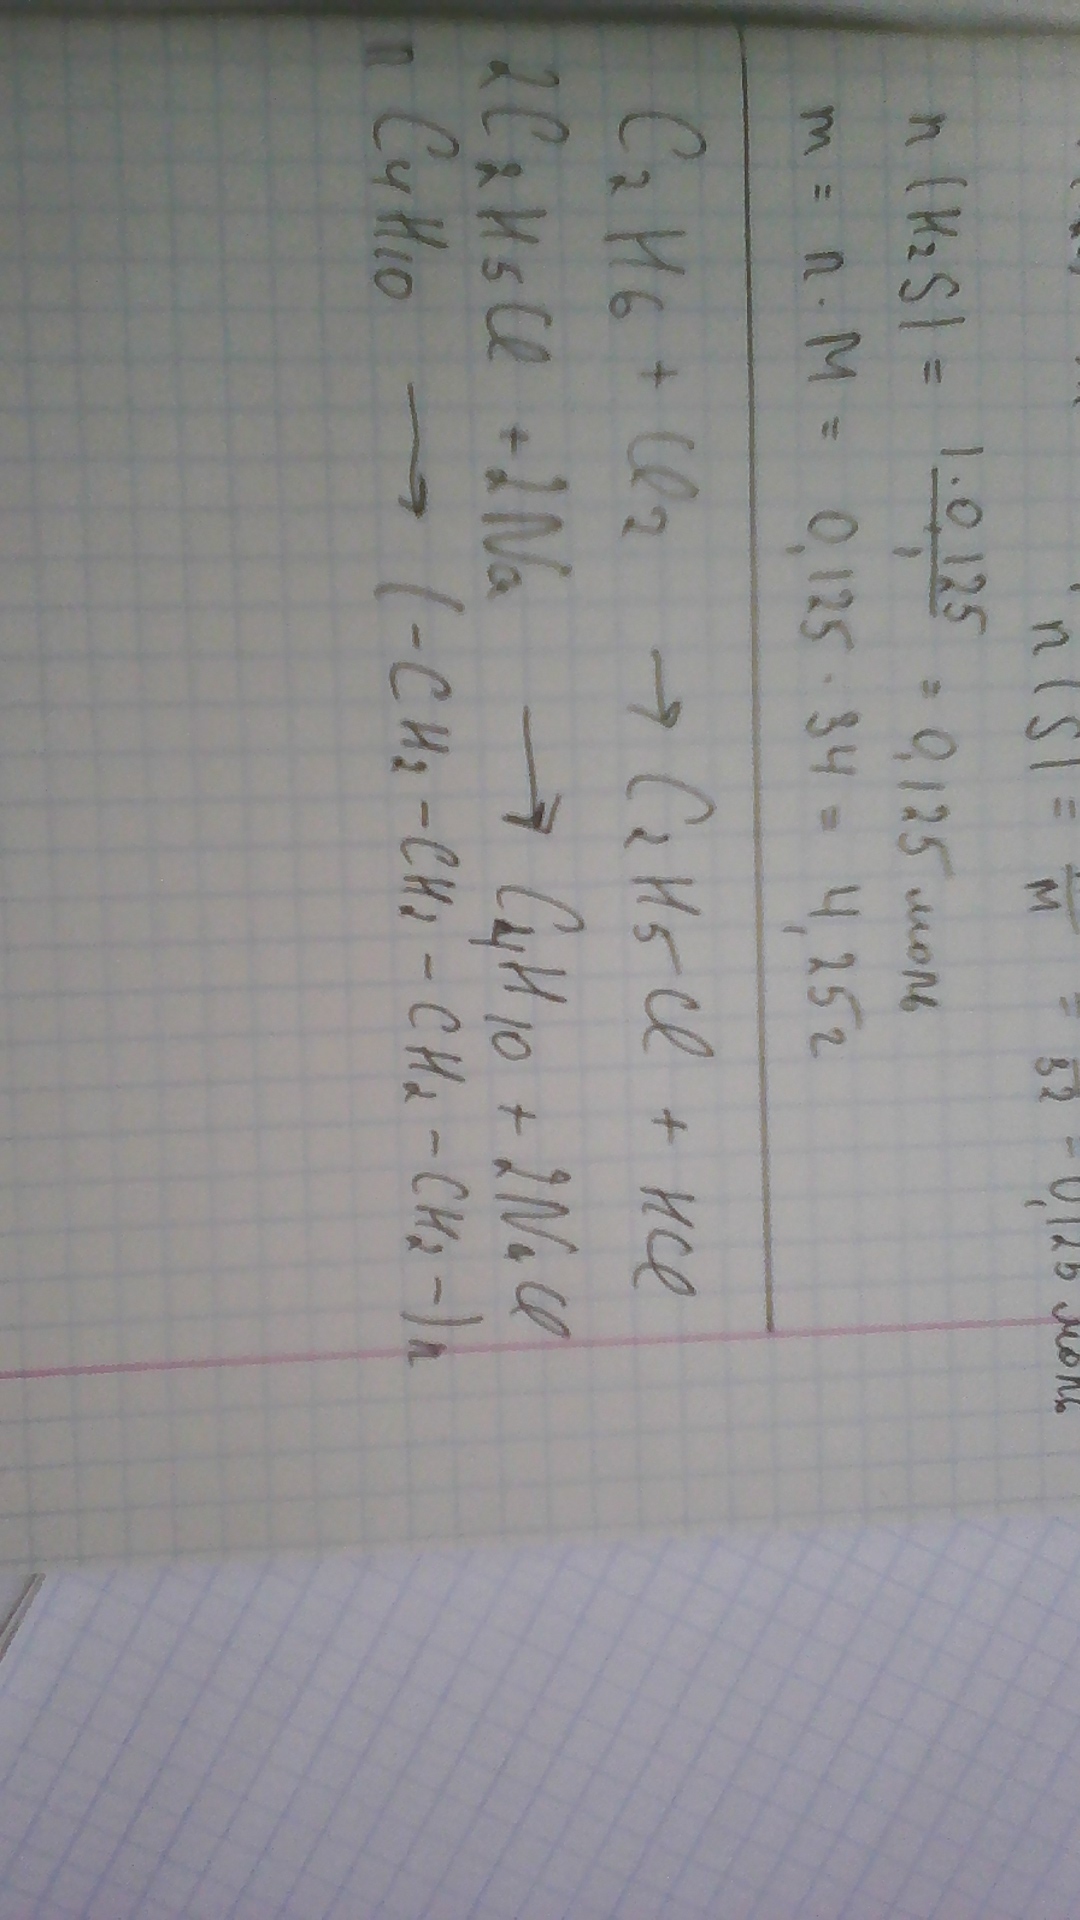 n(S) = m/M = /32 = 0,125 моль
n(H2S) = 1·0,125/1 = 0,125 моль
m = n·M = 0,125·34 = 4,25 г
C2H6 + Cl2 → C2H5Cl + HCl
2C2H5Cl + 2Na → C4H10 + 2NaCl
n C4H10 → (-CH2-CH2-CH2-CH2-)n